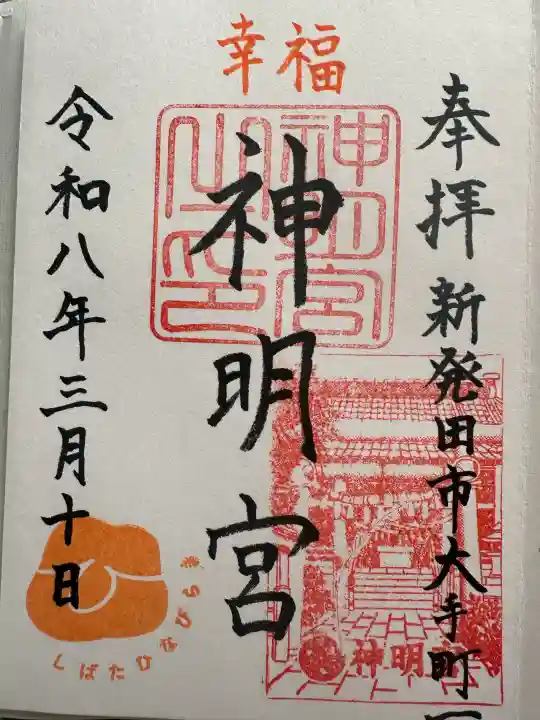 幸福
奉拝 新発田市大手町
神明宮
神明宮之印
神明
令和八年三月十日
しばたひなびより